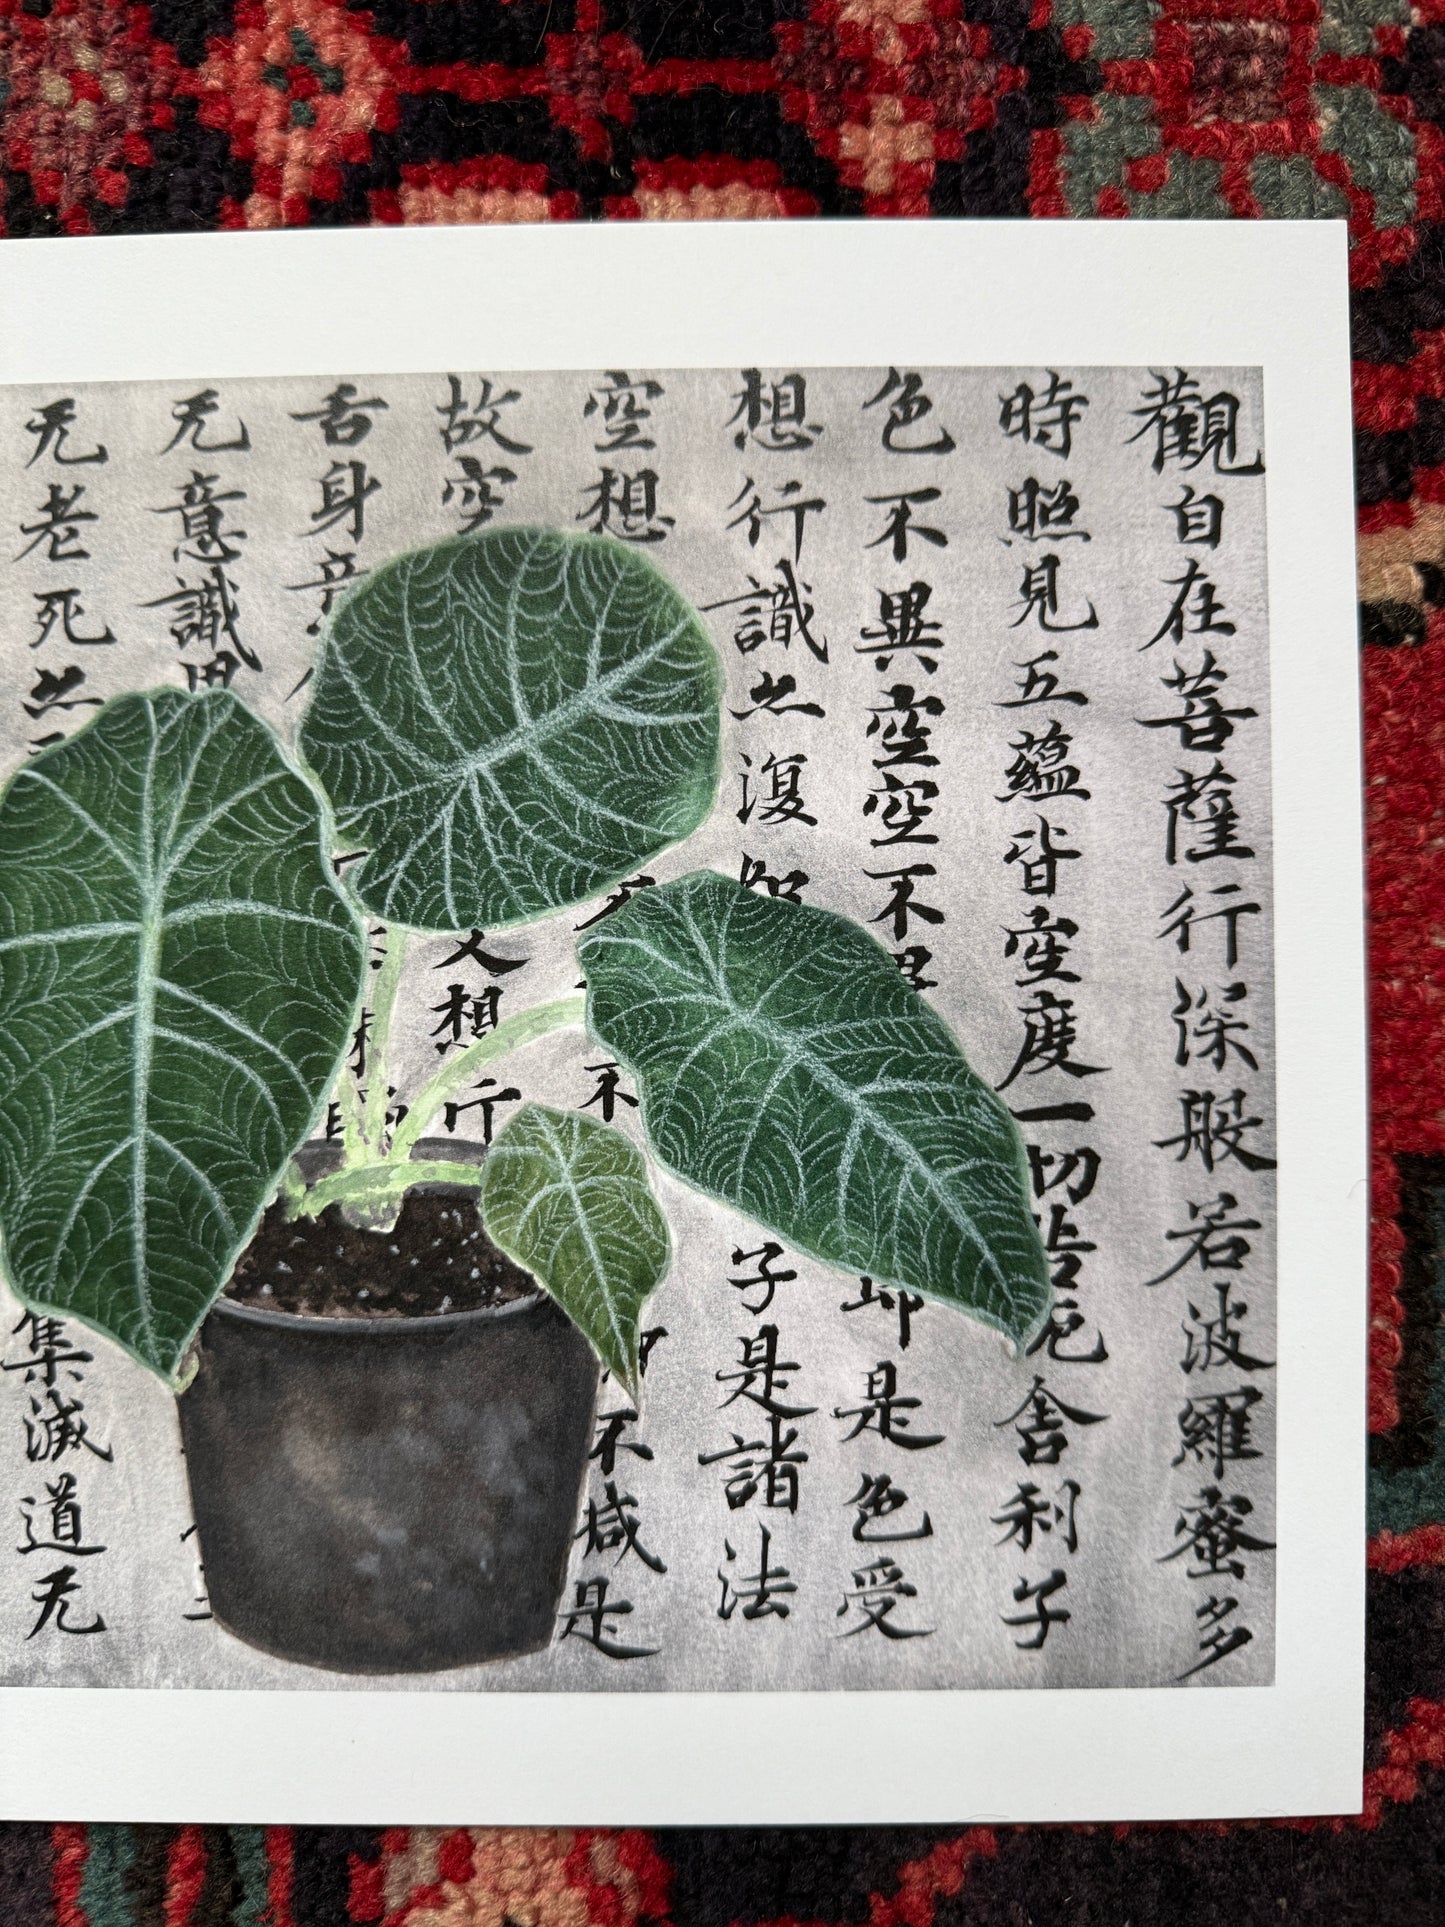 觀自在菩薩行深般若波羅蜜多
時照見五蘊皆空度一切苦厄舍利子
色不異空空不異是色受
想行識亦復子是諸法
空想不不減是
故空想行
舌身意
无意識界
无老死亦集滅道无